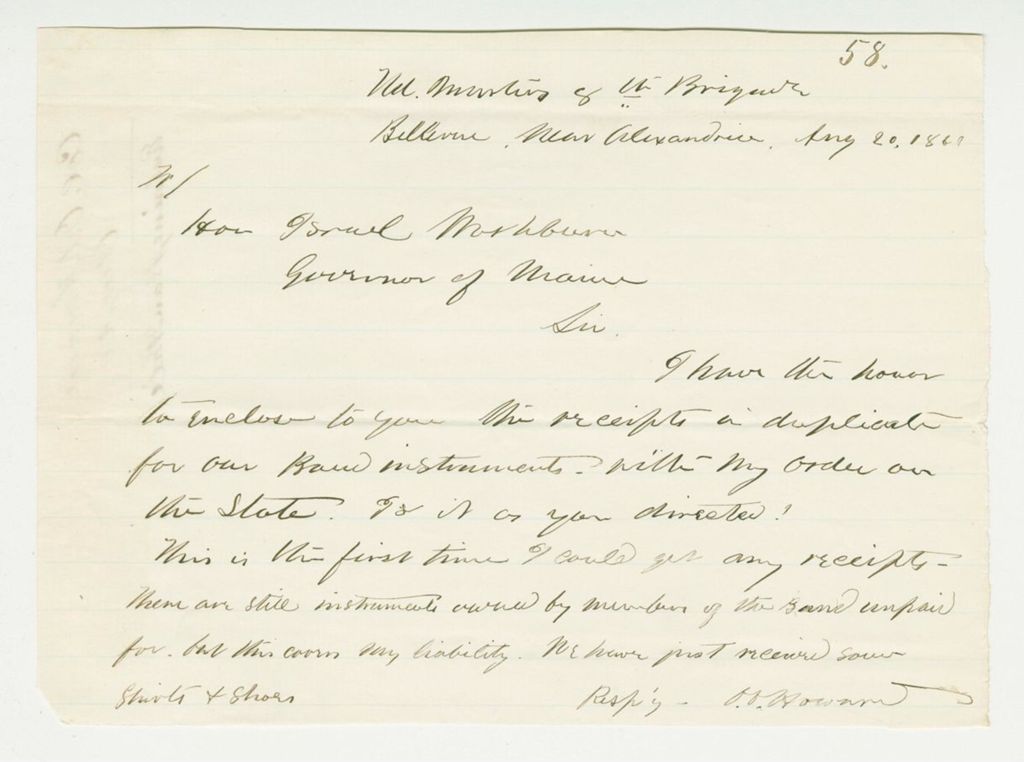 58.
Hd. Quarters of Brigade
Bellevue, Near Alexandria, Aug 20, 1861
To/
Hon Israel Washburn
Governor of Maine
Sir.
I have the honor
to enclose to you the receipts in duplicate
for our Band instruments - with my order on
the State. Is it as you directed?
This is the first time I could get any receipts -
There are still instruments owned by members of the Band unpaid
for. but this covers my liability. We have just received some
Shirts & Shoes Resp'y - O.O. Howard